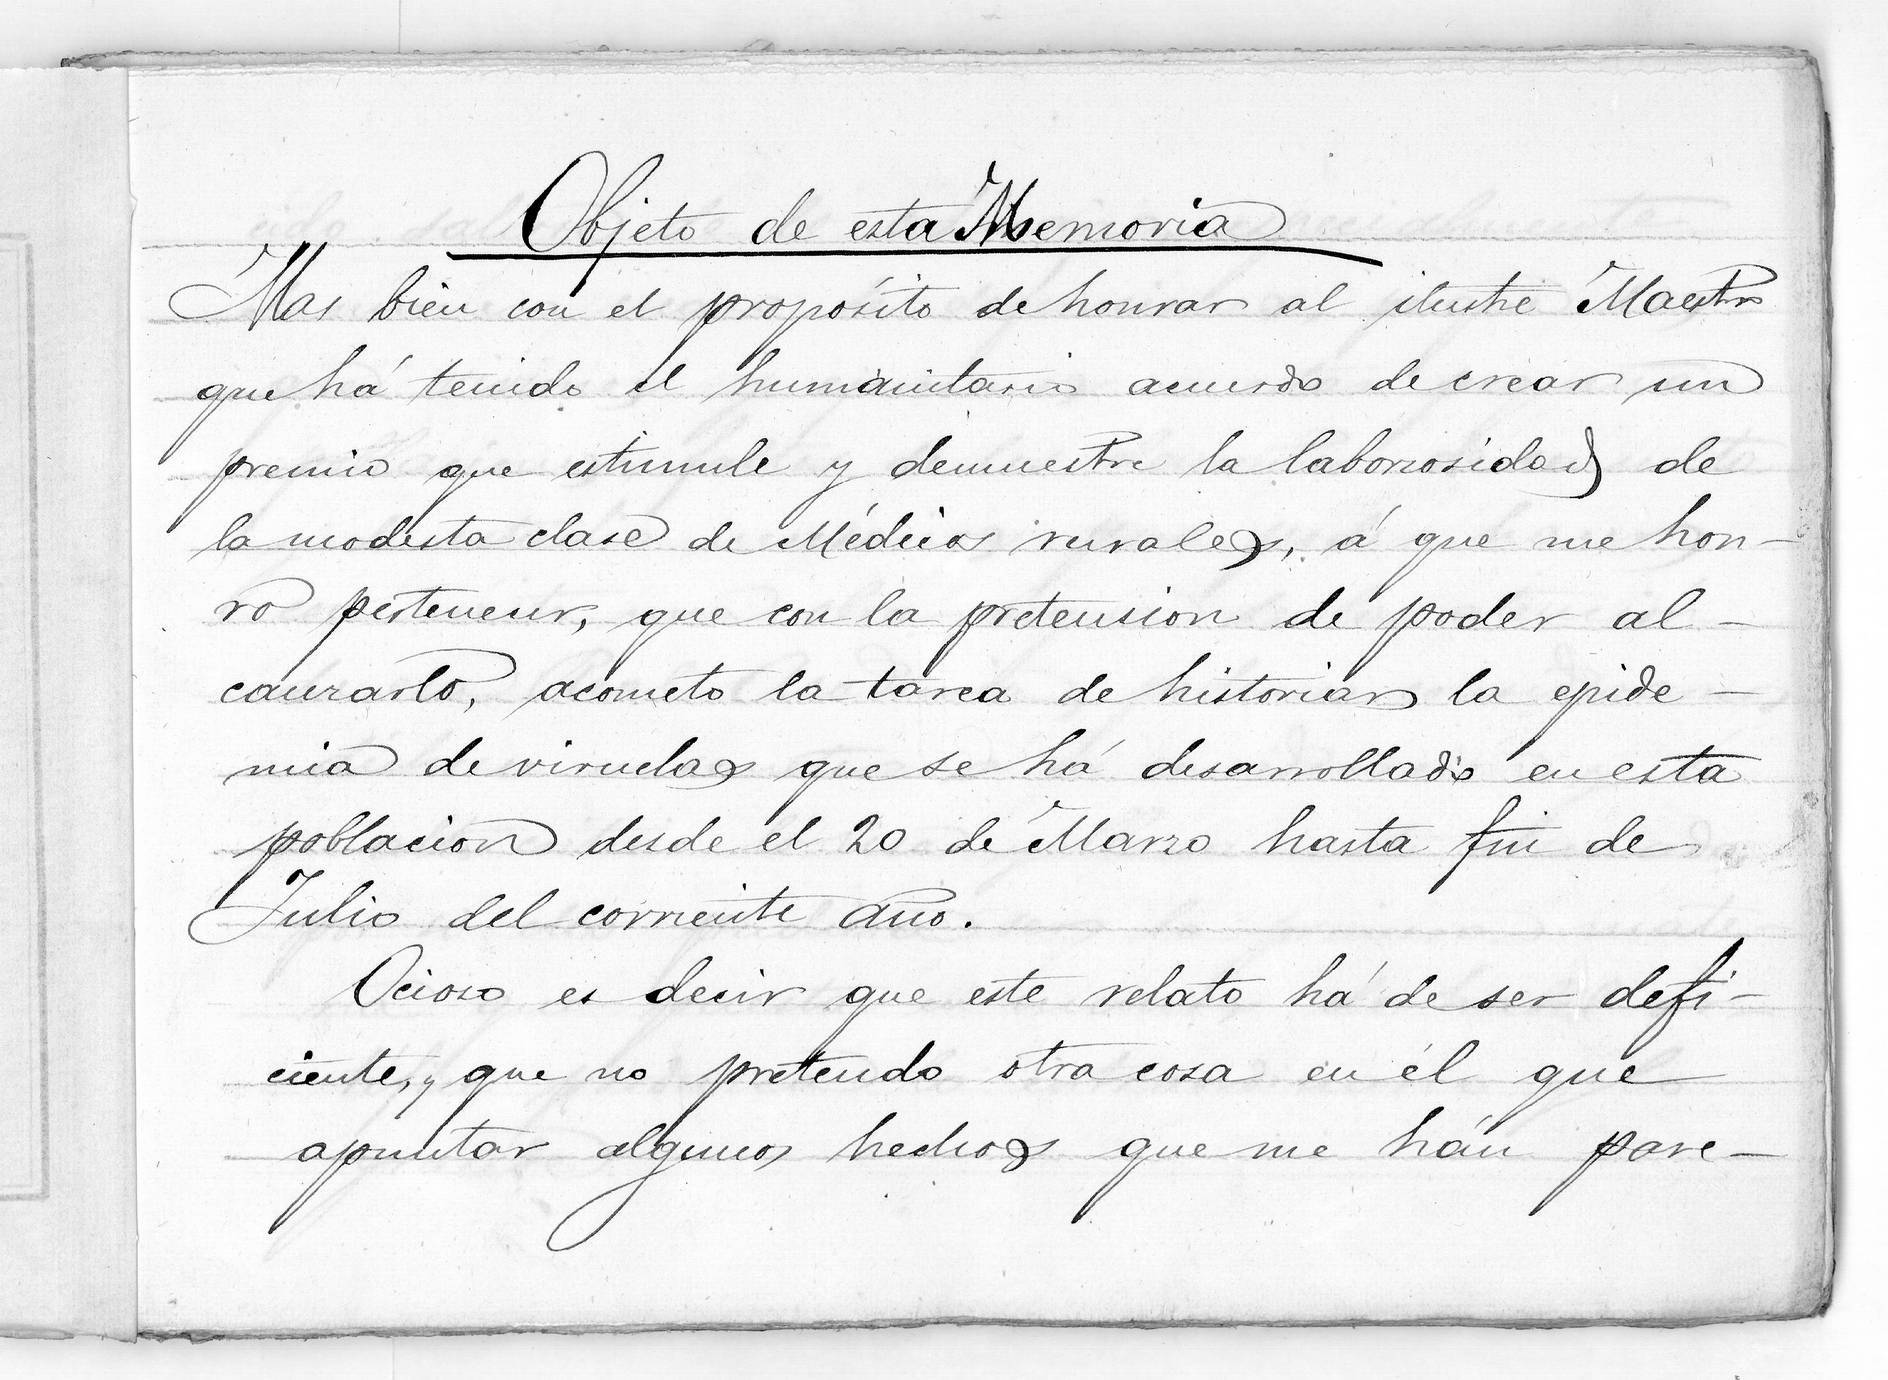 Objeto de esta Memoria
Mas bien con el propósito de honrar al ilustre Maestro
que há tenido el humanitario acuerdo de crear un
premio que estimule y demuestre la laboriosidad de
la modesta clase de Médicos rurales, á que me hon-
ro pertenecer, que con la pretension de poder al-
canzarlo, acometo la tarea de historiar la epide-
mia de viruelas que se há desarrollado en esta
poblacion desde el 20 de Marzo hasta fin de
Julio del corriente año.
Ocioso es decir que este relato há de ser defi-
ciente, y que no pretendo otra cosa en él que
apuntar algunos hechos que me hán pare-